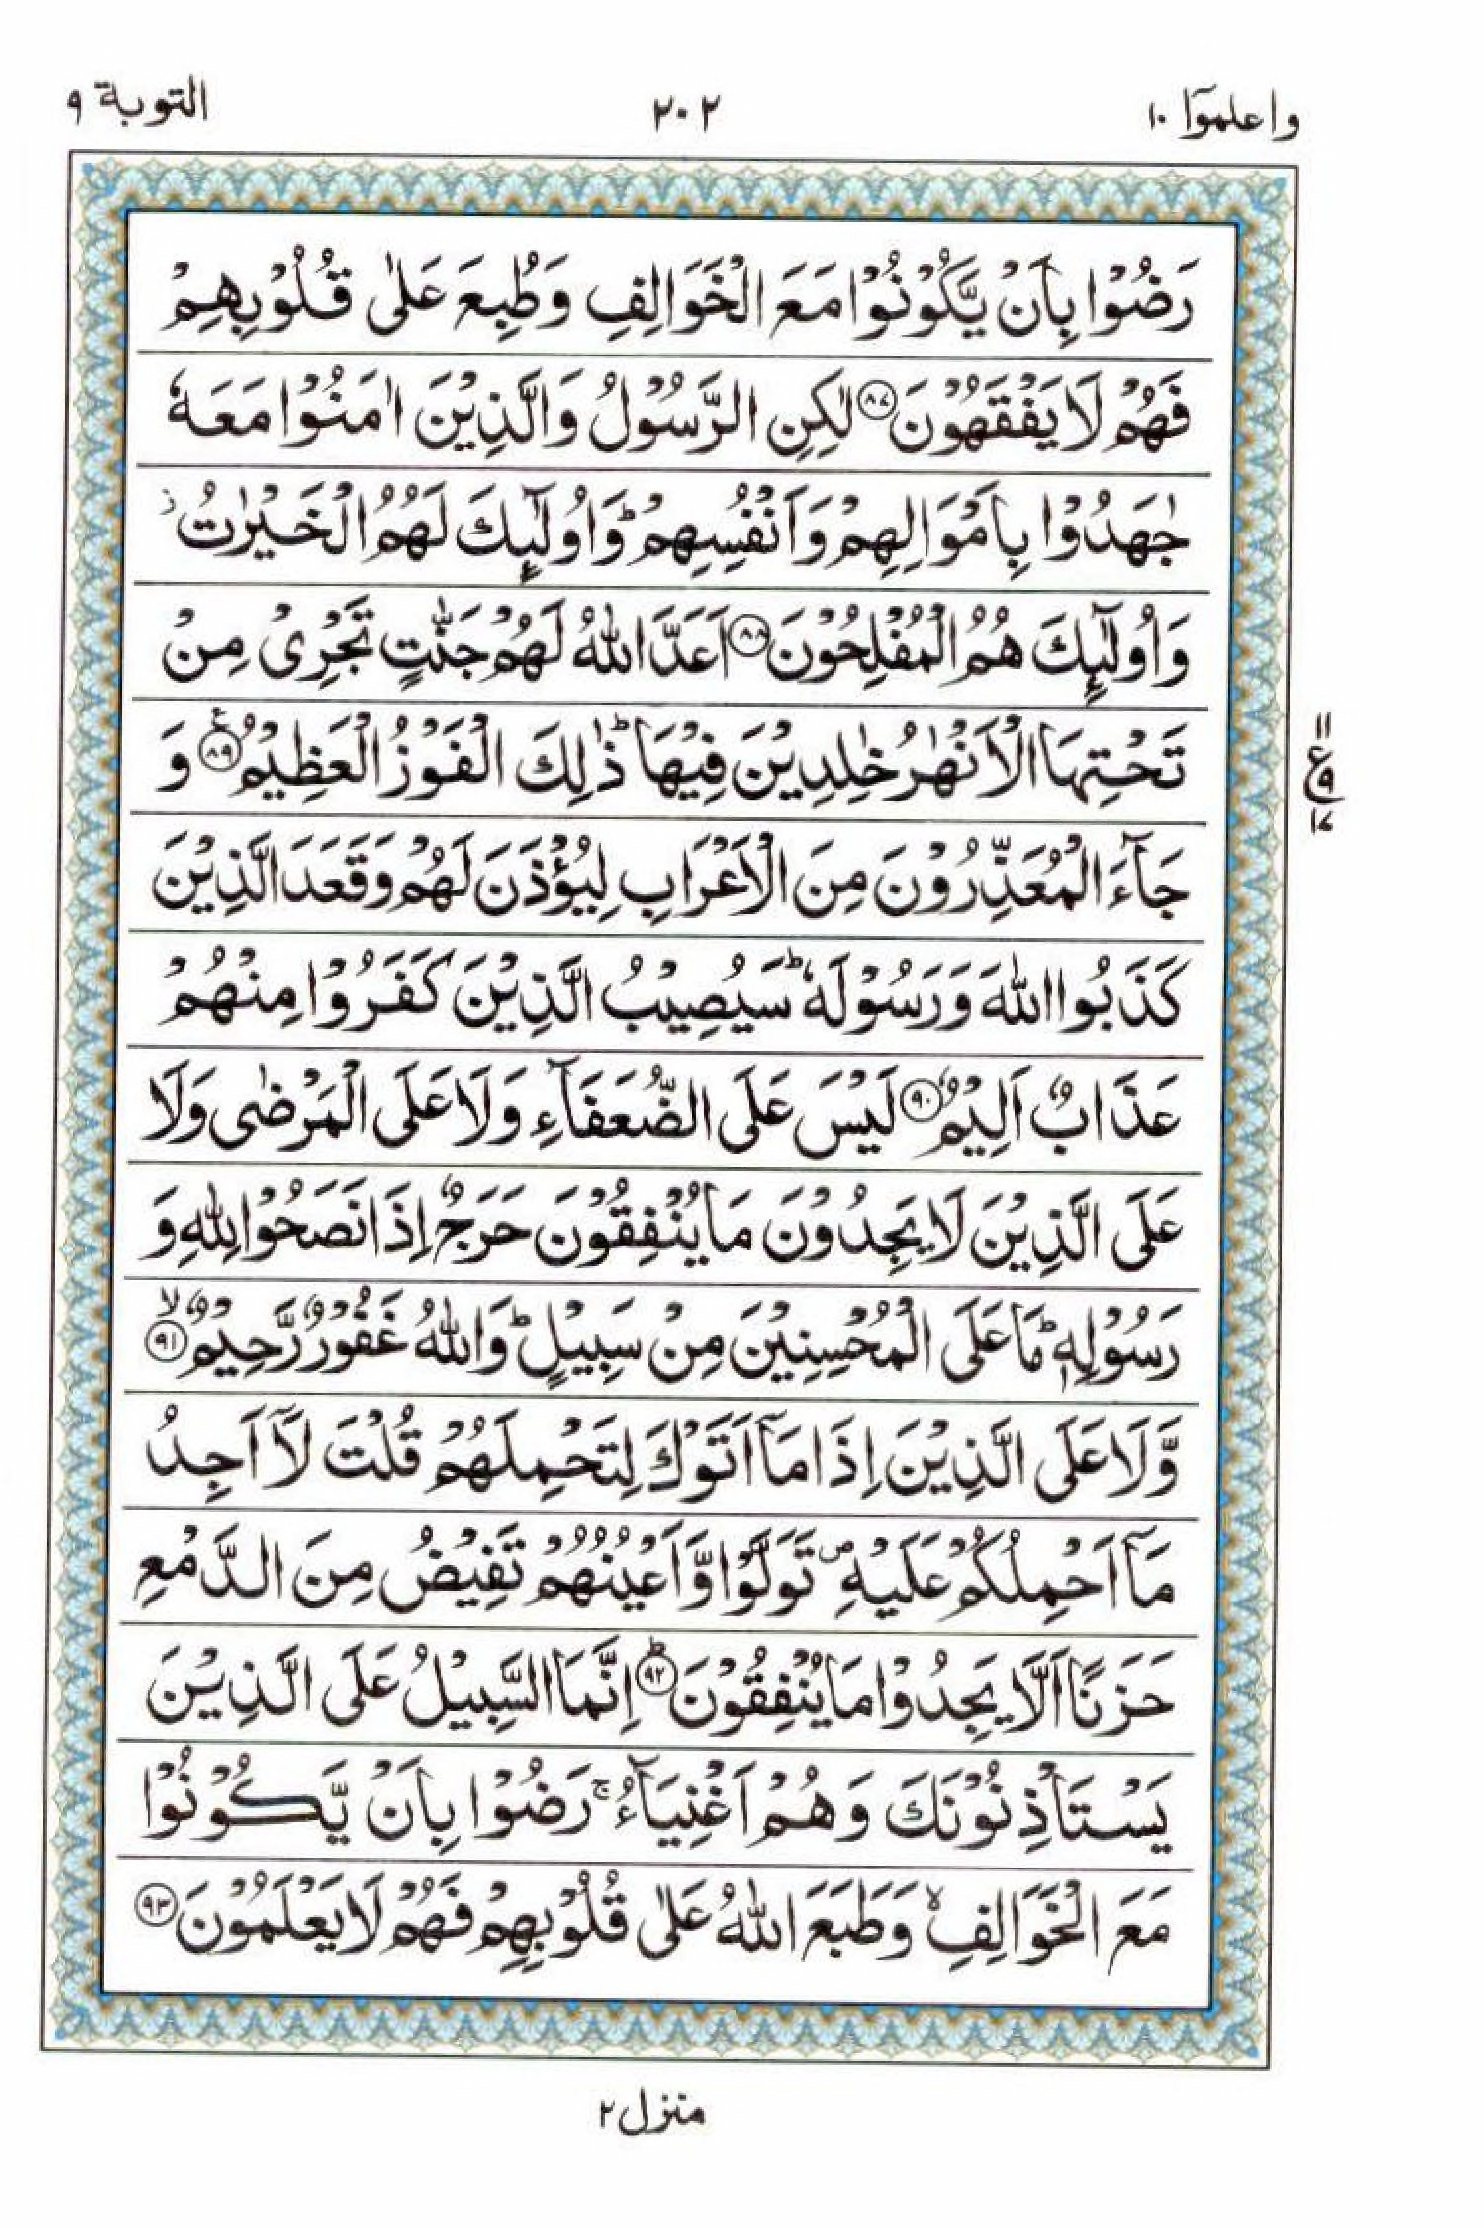 واعلموٓا ١٠
٢٠٢
التوبة ٩
رَضُوْا بِاَنْ يَّكُوْنُوْا مَعَ الْخَوَالِفِ وَطُبِعَ عَلٰى قُلُوْبِهِمْ
فَهُمْ لَا يَفْقَهُوْنَ ۝٨٧ لٰكِنِ الرَّسُوْلُ وَالَّذِيْنَ اٰمَنُوْا مَعَهٗ
جٰهَدُوْا بِاَمْوَالِهِمْ وَاَنْفُسِهِمْ ؕ وَاُولٰٓئِكَ لَهُمُ الْخَيْرٰتُ ز
وَاُولٰٓئِكَ هُمُ الْمُفْلِحُوْنَ ۝٨٨ اَعَدَّ اللّٰهُ لَهُمْ جَنّٰتٍ تَجْرِىْ مِنْ
تَحْتِهَا الْاَنْهٰرُ خٰلِدِيْنَ فِيْهَا ؕ ذٰلِكَ الْفَوْزُ الْعَظِيْمُ ۝٨٩ ع وَ
جَآءَ الْمُعَذِّرُوْنَ مِنَ الْاَعْرَابِ لِيُؤْذَنَ لَهُمْ وَقَعَدَ الَّذِيْنَ
كَذَبُوا اللّٰهَ وَرَسُوْلَهٗ ؕ سَيُصِيْبُ الَّذِيْنَ كَفَرُوْا مِنْهُمْ
عَذَابٌ اَلِيْمٌ ۝٩٠ لَيْسَ عَلَى الضُّعَفَآءِ وَلَا عَلَى الْمَرْضٰى وَلَا
عَلَى الَّذِيْنَ لَا يَجِدُوْنَ مَا يُنْفِقُوْنَ حَرَجٌ اِذَا نَصَحُوْا لِلّٰهِ وَ
رَسُوْلِهٖ ؕ مَا عَلَى الْمُحْسِنِيْنَ مِنْ سَبِيْلٍ ؕ وَاللّٰهُ غَفُوْرٌ رَّحِيْمٌ ۙ ۝٩١
وَّلَا عَلَى الَّذِيْنَ اِذَا مَآ اَتَوْكَ لِتَحْمِلَهُمْ قُلْتَ لَآ اَجِدُ
مَآ اَحْمِلُكُمْ عَلَيْهِ ص تَوَلَّوْا وَّاَعْيُنُهُمْ تَفِيْضُ مِنَ الدَّمْعِ
حَزَنًا اَلَّا يَجِدُوْا مَا يُنْفِقُوْنَ ؕ ۝٩٢ اِنَّمَا السَّبِيْلُ عَلَى الَّذِيْنَ
يَسْتَاْذِنُوْنَكَ وَهُمْ اَغْنِيَآءُ ۚ رَضُوْا بِاَنْ يَّكُوْنُوْا
مَعَ الْخَوَالِفِ ۙ وَطَبَعَ اللّٰهُ عَلٰى قُلُوْبِهِمْ فَهُمْ لَا يَعْلَمُوْنَ ۝٩٣
١١
ع ٩
١٧
منزل ٢